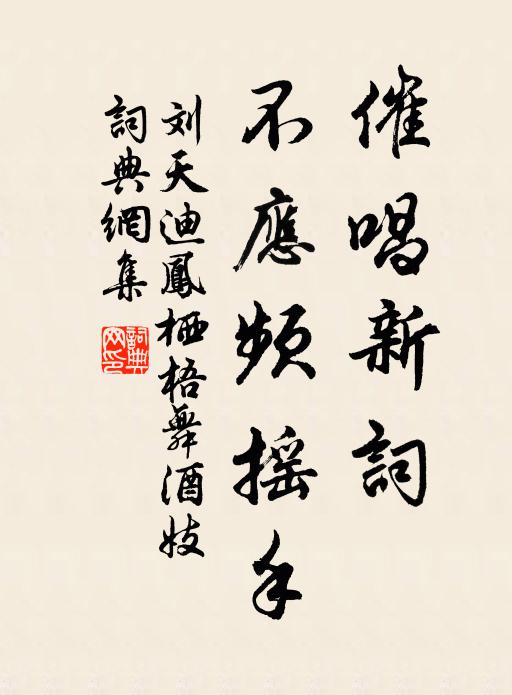 催唱新詞
不應頻摇手
刘天迪鳳栖梧舞酒妓
詞典網集
詞典网印